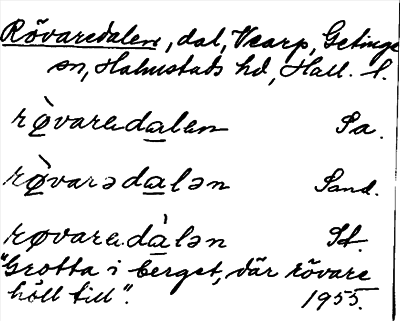 Rövaredalen, dal, Vcarp, Getinge
sn, Halmstads hd, Hall. l.
rø̀varedalen Sa.
rø̀varədalən Sand.
røvaredàlən St.
"Grotta i berget, där rövare
höll till". 1955.